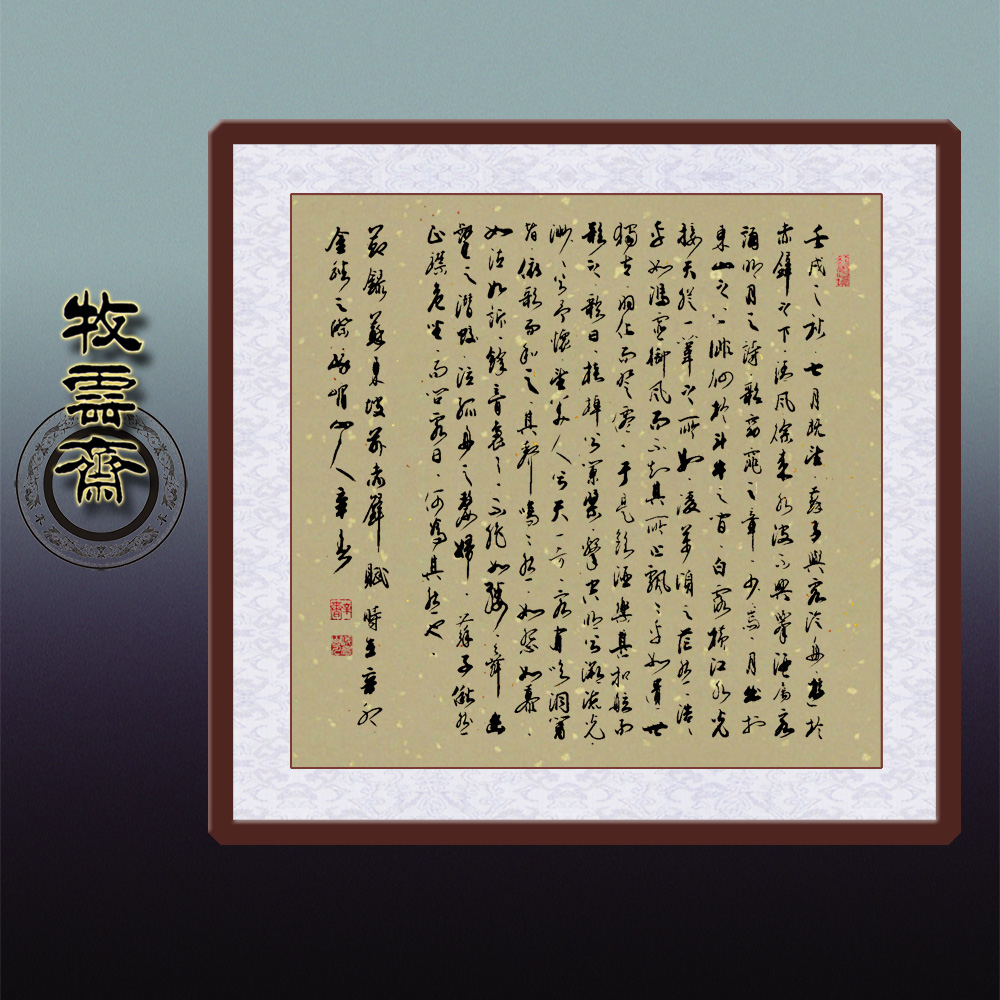 牧雲齋
壬戌之秋七月既望蘇子與客泛舟遊於
赤壁之下清風徐來水波不興舉酒屬客
誦明月之詩歌窈窕之章少焉月出於
東山之上徘徊於斗牛之間白露橫江水光
接天縱一葦之所如凌萬頃之茫然浩浩
乎如馮虛御風而不知其所止飄飄乎如遺世
獨立羽化而登僊于是飲酒樂甚扣舷而
歌之歌曰桂棹兮蘭槳擊空明兮溯流光
渺渺兮予懷望美人兮天一方客有吹洞簫
者倚歌而和之其聲嗚嗚然如怨如慕
如泣如訴餘音裊裊不絕如縷舞幽
壑之潛蛟泣孤舟之嫠婦蘇子愀然
正襟危坐而問客曰何為其然也
節錄蘇東坡前赤壁賦時在辛卯
金秋之際峨嵋山人辛春